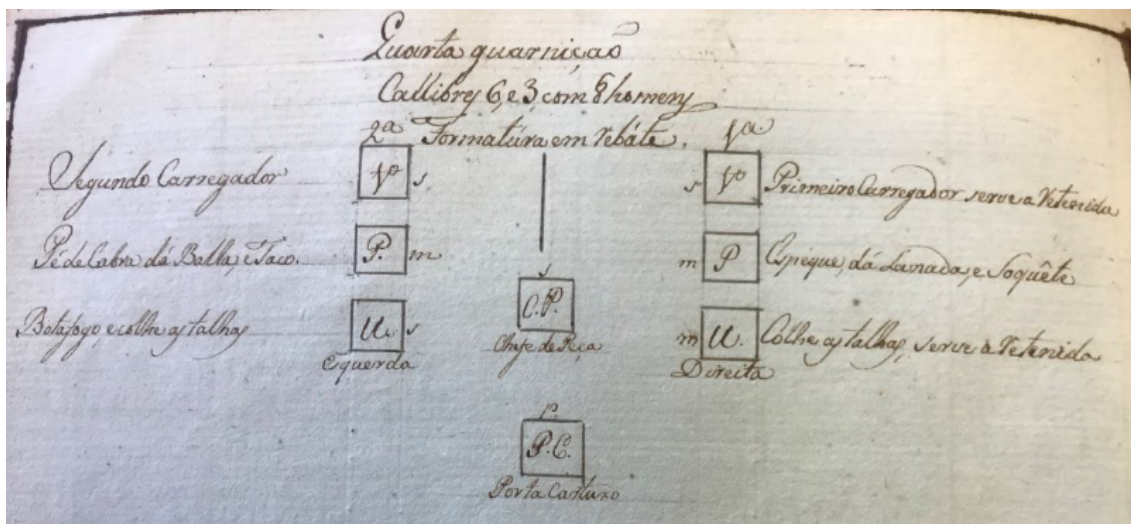 Quarta guarnicaõ
Callibres 6, e 3, com 8 homens
2a Formatúra em Rebáte. 1a
Segundo Carregador 1o s s 1o Primeiro Carregador serve a Retenida
Pé de Cabra dá Balla, e Taco. P. m m P Espeque, dá Lanada, e Soquête
s
C. P.
Botafogo, e colhe as talhas U. s m U. Colhe as talhas, serve à Retenida
Esquerda Chefe de Peça Direita
P. C.
Porta Cartuxo